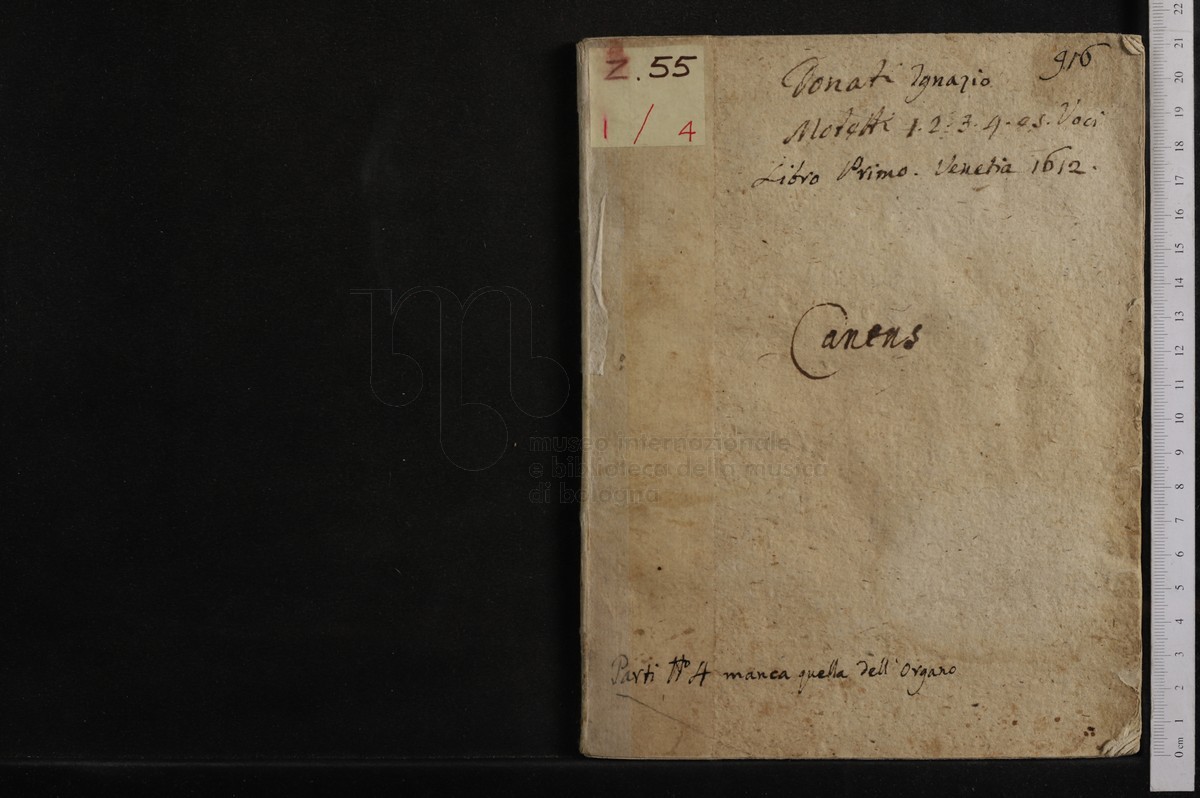 Z.55
1 / 4
916
Donati Ignazio
Motetti 1.2.3.4. e 5. Voci
Libro Primo. Venetia 1612.
Canens
museo internazionale
e biblioteca della musica
di bologna
Parti No 4 manca quella dell'Organo
0 cm 1 2 3 4 5 6 7 8 9 10 11 12 13 14 15 16 17 18 19 20 21 22